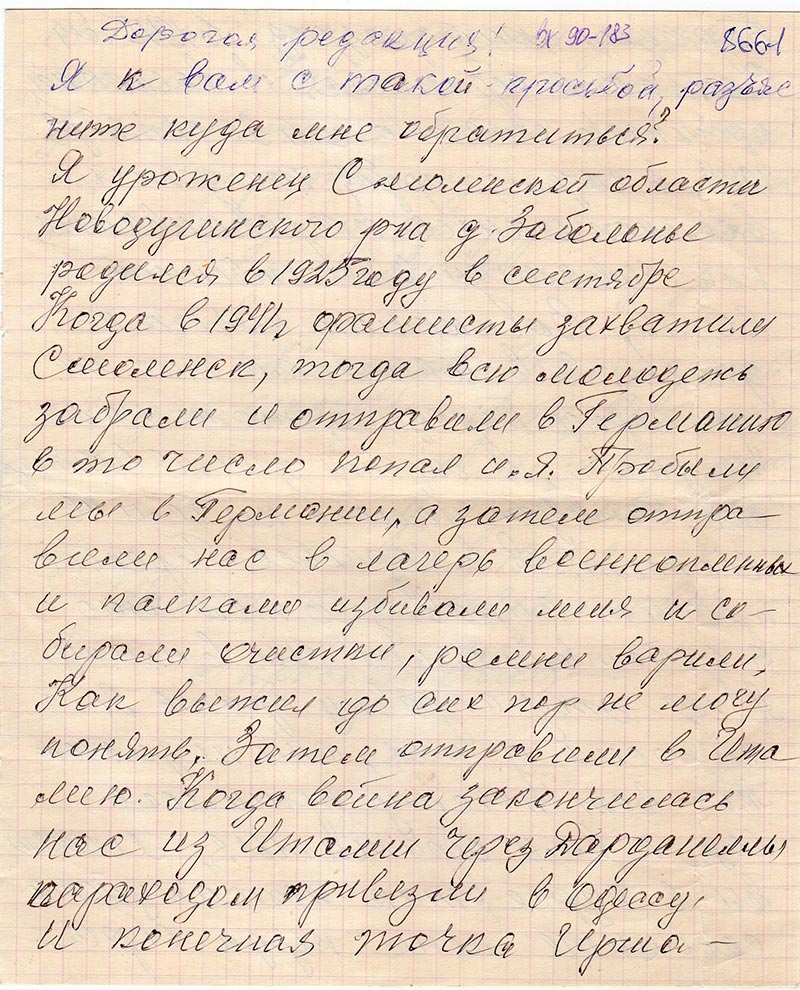 Дорогая редакция! вх 90-183 8661
Я к вам с такой просьбой, разъяс
ниже куда мне обратиться?
Я уроженец Смоленской области
Новодугинского рна д. Заболонье
родился в 1925 году в сентябре
Когда в 1941г фашисты захватили
Смоленск, тогда всю молодежь
забрали и отправили в Германию
в то число попал и я. Пробыли
мы в Германии, а затем отпра-
вили нас в лагерь военнопленных
и палками избивали миня и со-
бирали очистки, ремни варили,
Как выжил до сих пор не могу
понять. Затем отправили в Ита
лию. Когда война закончилась
нас из Италии через Дарданеллы
параходом привезли в Одессу,
И конечная точка